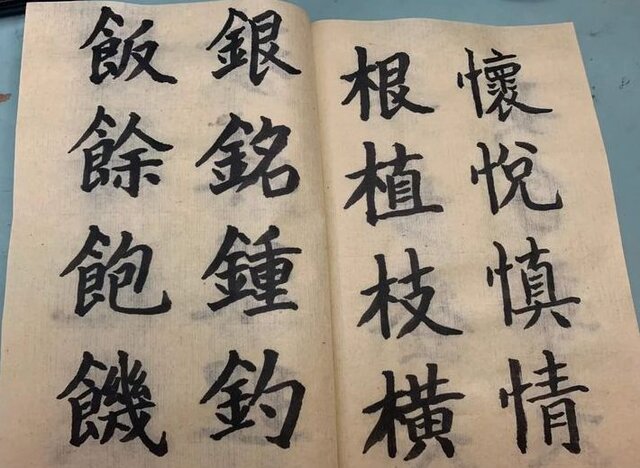 懷悅慎情
根植枝橫
銀銘鍾釣
飯餘飽饑